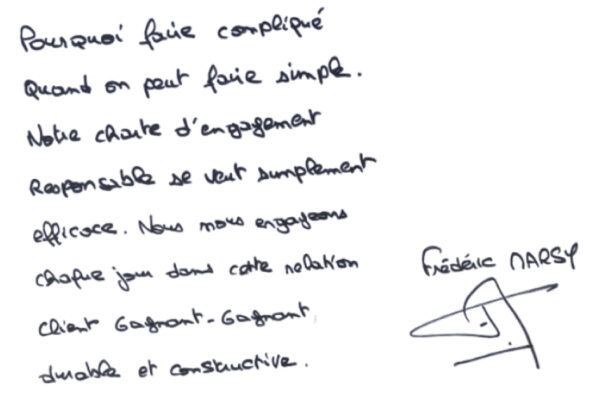 Pourquoi faire compliqué
Quand on peut faire simple.
Notre charte d'engagement
Responsable se veut simplement
efficace. Nous nous engageons
chaque jour dans cette relation
client Gagnant-Gagnant,
durable et constructive.
Frédéric MARSY